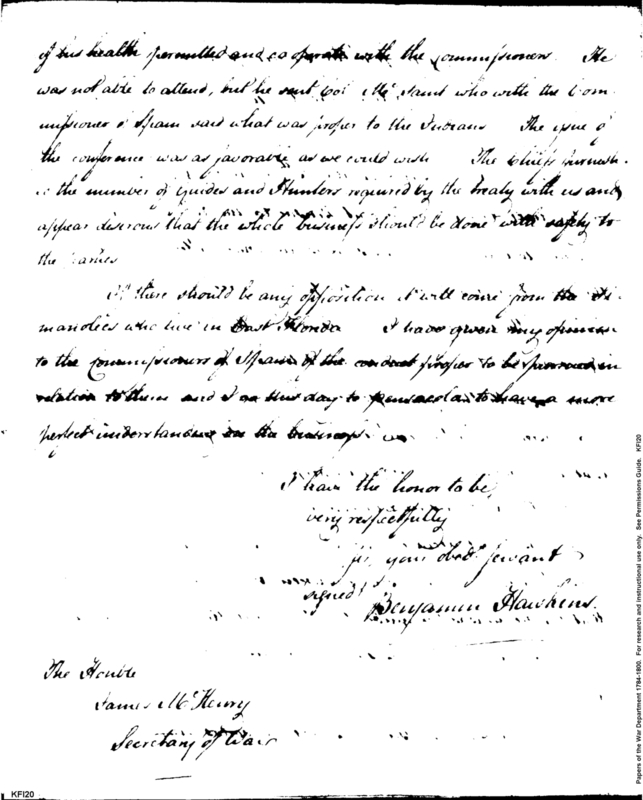 of his health permitted and co operate with the commissioners He
was not able to attend, but he sent Col Mc Saint who with the Com
missioner of Spain said what was proper to the Indians The issue of
the conference was as favorable as we could wish The Chiefs furnish
the number of guides and Hunters required by the treaty with us and
appear desirous that the whole business should be done with safety to
the parties
If there should be any opposition it will come from the Si
manolies who live in East Florida I have given my opinion
to the Commissioners of Spain of the conduct proper to be pursued in
relation to them and I go this day to pensacola to have a more
perfect understanding on the business
I have the honor to be,
very respectfully
sir, your obedt servant
signed
Benjamin Hawkins.
The Honble
James McHenry
Secretary of War
KFI20
Papers of the War Department 1784-1800. For research and instructional use only. See Permissions Guide. KFI20